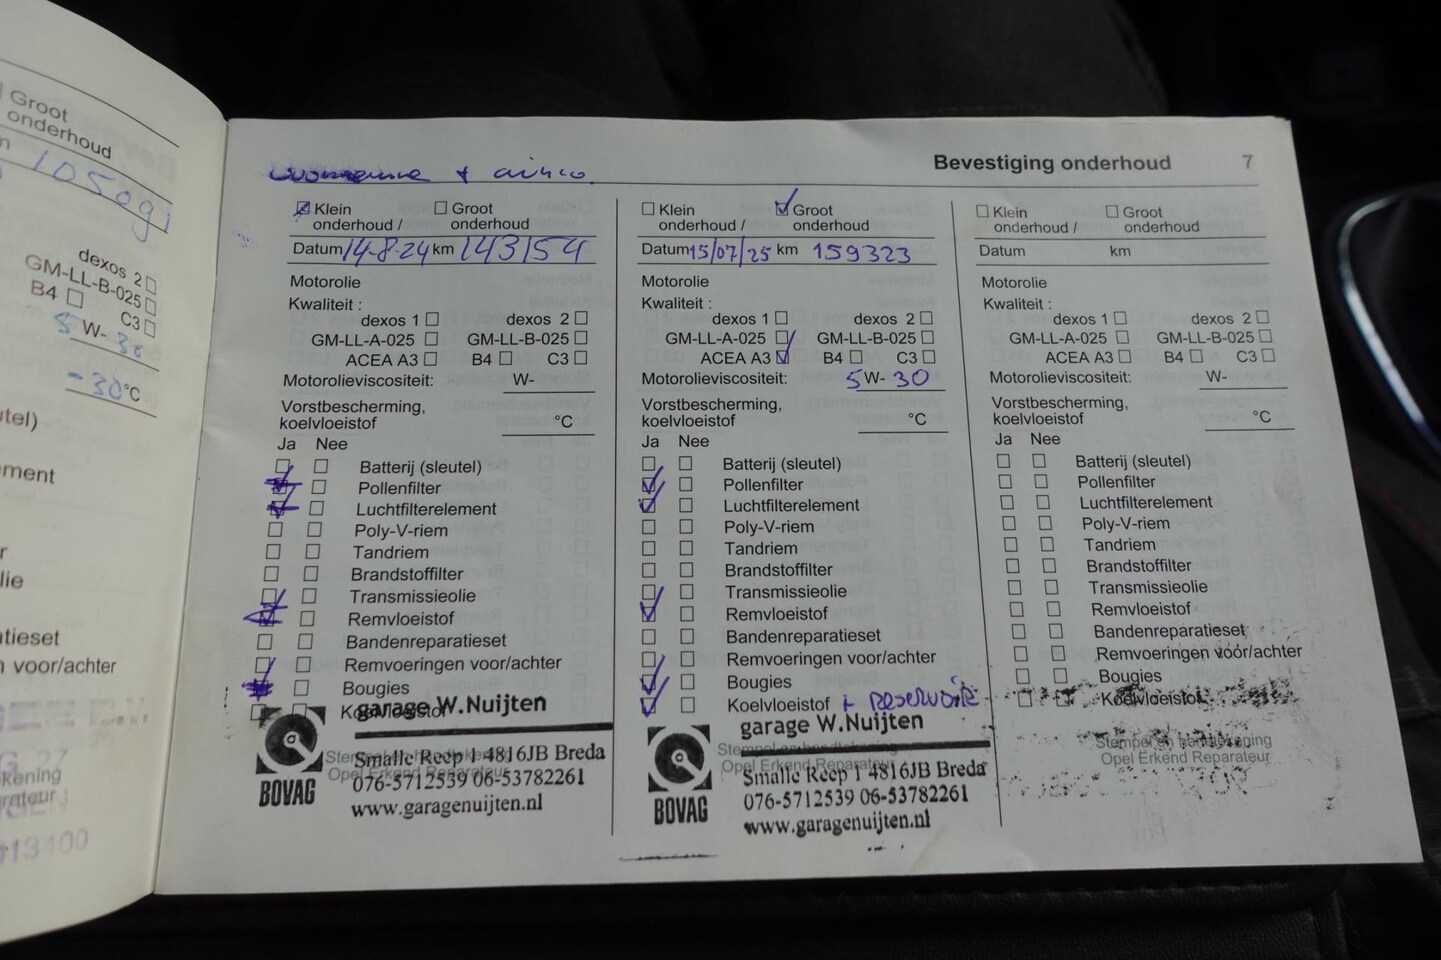 Groot
onderhoud
105091
dexos 2
GM-LL-B-025
B4 C3
5 W- 30
-30 °C
Bevestiging onderhoud 7
+ airco.
Klein
onderhoud /
Groot
onderhoud
Datum 14-8-24 km 143154
Motorolie
Kwaliteit :
dexos 1 dexos 2
GM-LL-A-025 GM-LL-B-025
ACEA A3 B4 C3
Motorolieviscositeit: W-
Vorstbescherming,
koelvloeistof °C
Ja Nee
Batterij (sleutel)
Pollenfilter
Luchtfilterelement
Poly-V-riem
Tandriem
Brandstoffilter
Transmissieolie
Remvloeistof
Bandenreparatieset
Remvoeringen voor/achter
Bougies
Koelvloeistof
garage W.Nuijten
Stempel en handtekening
Opel Erkend Reparateur
Smalle Reep 1 4816JB Breda
076-5712539 06-53782261
www.garagenuijten.nl
BOVAG
Klein
onderhoud /
Groot
onderhoud
Datum 15/07/25 km 159323
Motorolie
Kwaliteit :
dexos 1 dexos 2
GM-LL-A-025 GM-LL-B-025
ACEA A3 B4 C3
Motorolieviscositeit: 5 W- 30
Vorstbescherming,
koelvloeistof °C
Ja Nee
Batterij (sleutel)
Pollenfilter
Luchtfilterelement
Poly-V-riem
Tandriem
Brandstoffilter
Transmissieolie
Remvloeistof
Bandenreparatieset
Remvoeringen voor/achter
Bougies
Koelvloeistof + reservoir
garage W.Nuijten
Stempel en handtekening
Opel Erkend Reparateur
Smalle Reep 1 4816JB Breda
076-5712539 06-53782261
www.garagenuijten.nl
BOVAG
Klein
onderhoud /
Groot
onderhoud
Datum km
Motorolie
Kwaliteit :
dexos 1 dexos 2
GM-LL-A-025 GM-LL-B-025
ACEA A3 B4 C3
Motorolieviscositeit: W-
Vorstbescherming,
koelvloeistof °C
Ja Nee
Batterij (sleutel)
Pollenfilter
Luchtfilterelement
Poly-V-riem
Tandriem
Brandstoffilter
Transmissieolie
Remvloeistof
Bandenreparatieset
Remvoeringen voor/achter
Bougies
Koelvloeistof
Stempel en handtekening
Opel Erkend Reparateur